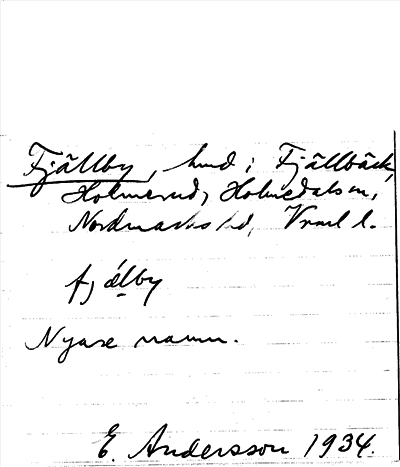 Fjällby, hmd i Fjällbäck,
Holmerud, Holmedals sn,
Nordmarks hd, Vrml l.
fjälby
Nyare namn.
E. Andersson 1934.